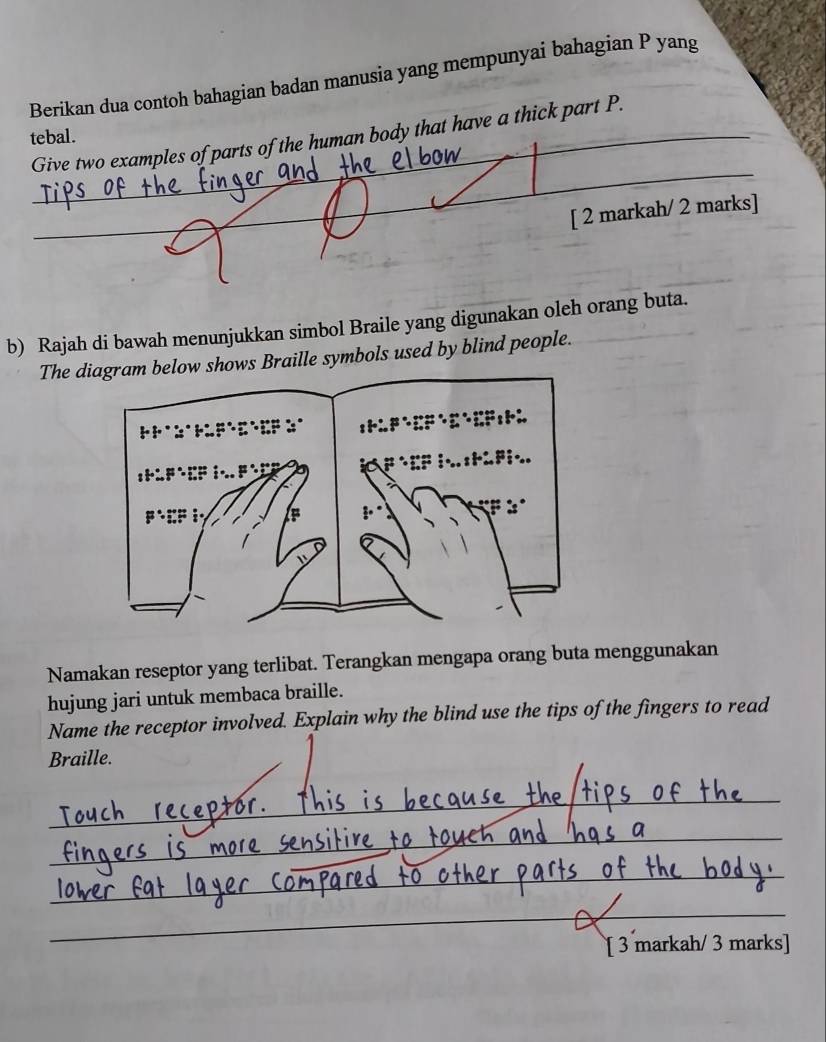 Berikan dua contoh bahagian badan manusia yang mempunyai bahagian P yang
tebal.
Give two examples of parts of the human body that have a thick part P.
Tips of the finger and the elbow
[ 2 markah/ 2 marks]
b) Rajah di bawah menunjukkan simbol Braile yang digunakan oleh orang buta.
The diagram below shows Braille symbols used by blind people.
Namakan reseptor yang terlibat. Terangkan mengapa orang buta menggunakan
hujung jari untuk membaca braille.
Name the receptor involved. Explain why the blind use the tips of the fingers to read
Braille.
Touch receptor. This is because the tips of the
fingers is more sensitive to touch and has a
lower fat layer compared to other parts of the body.
[ 3 markah/ 3 marks]